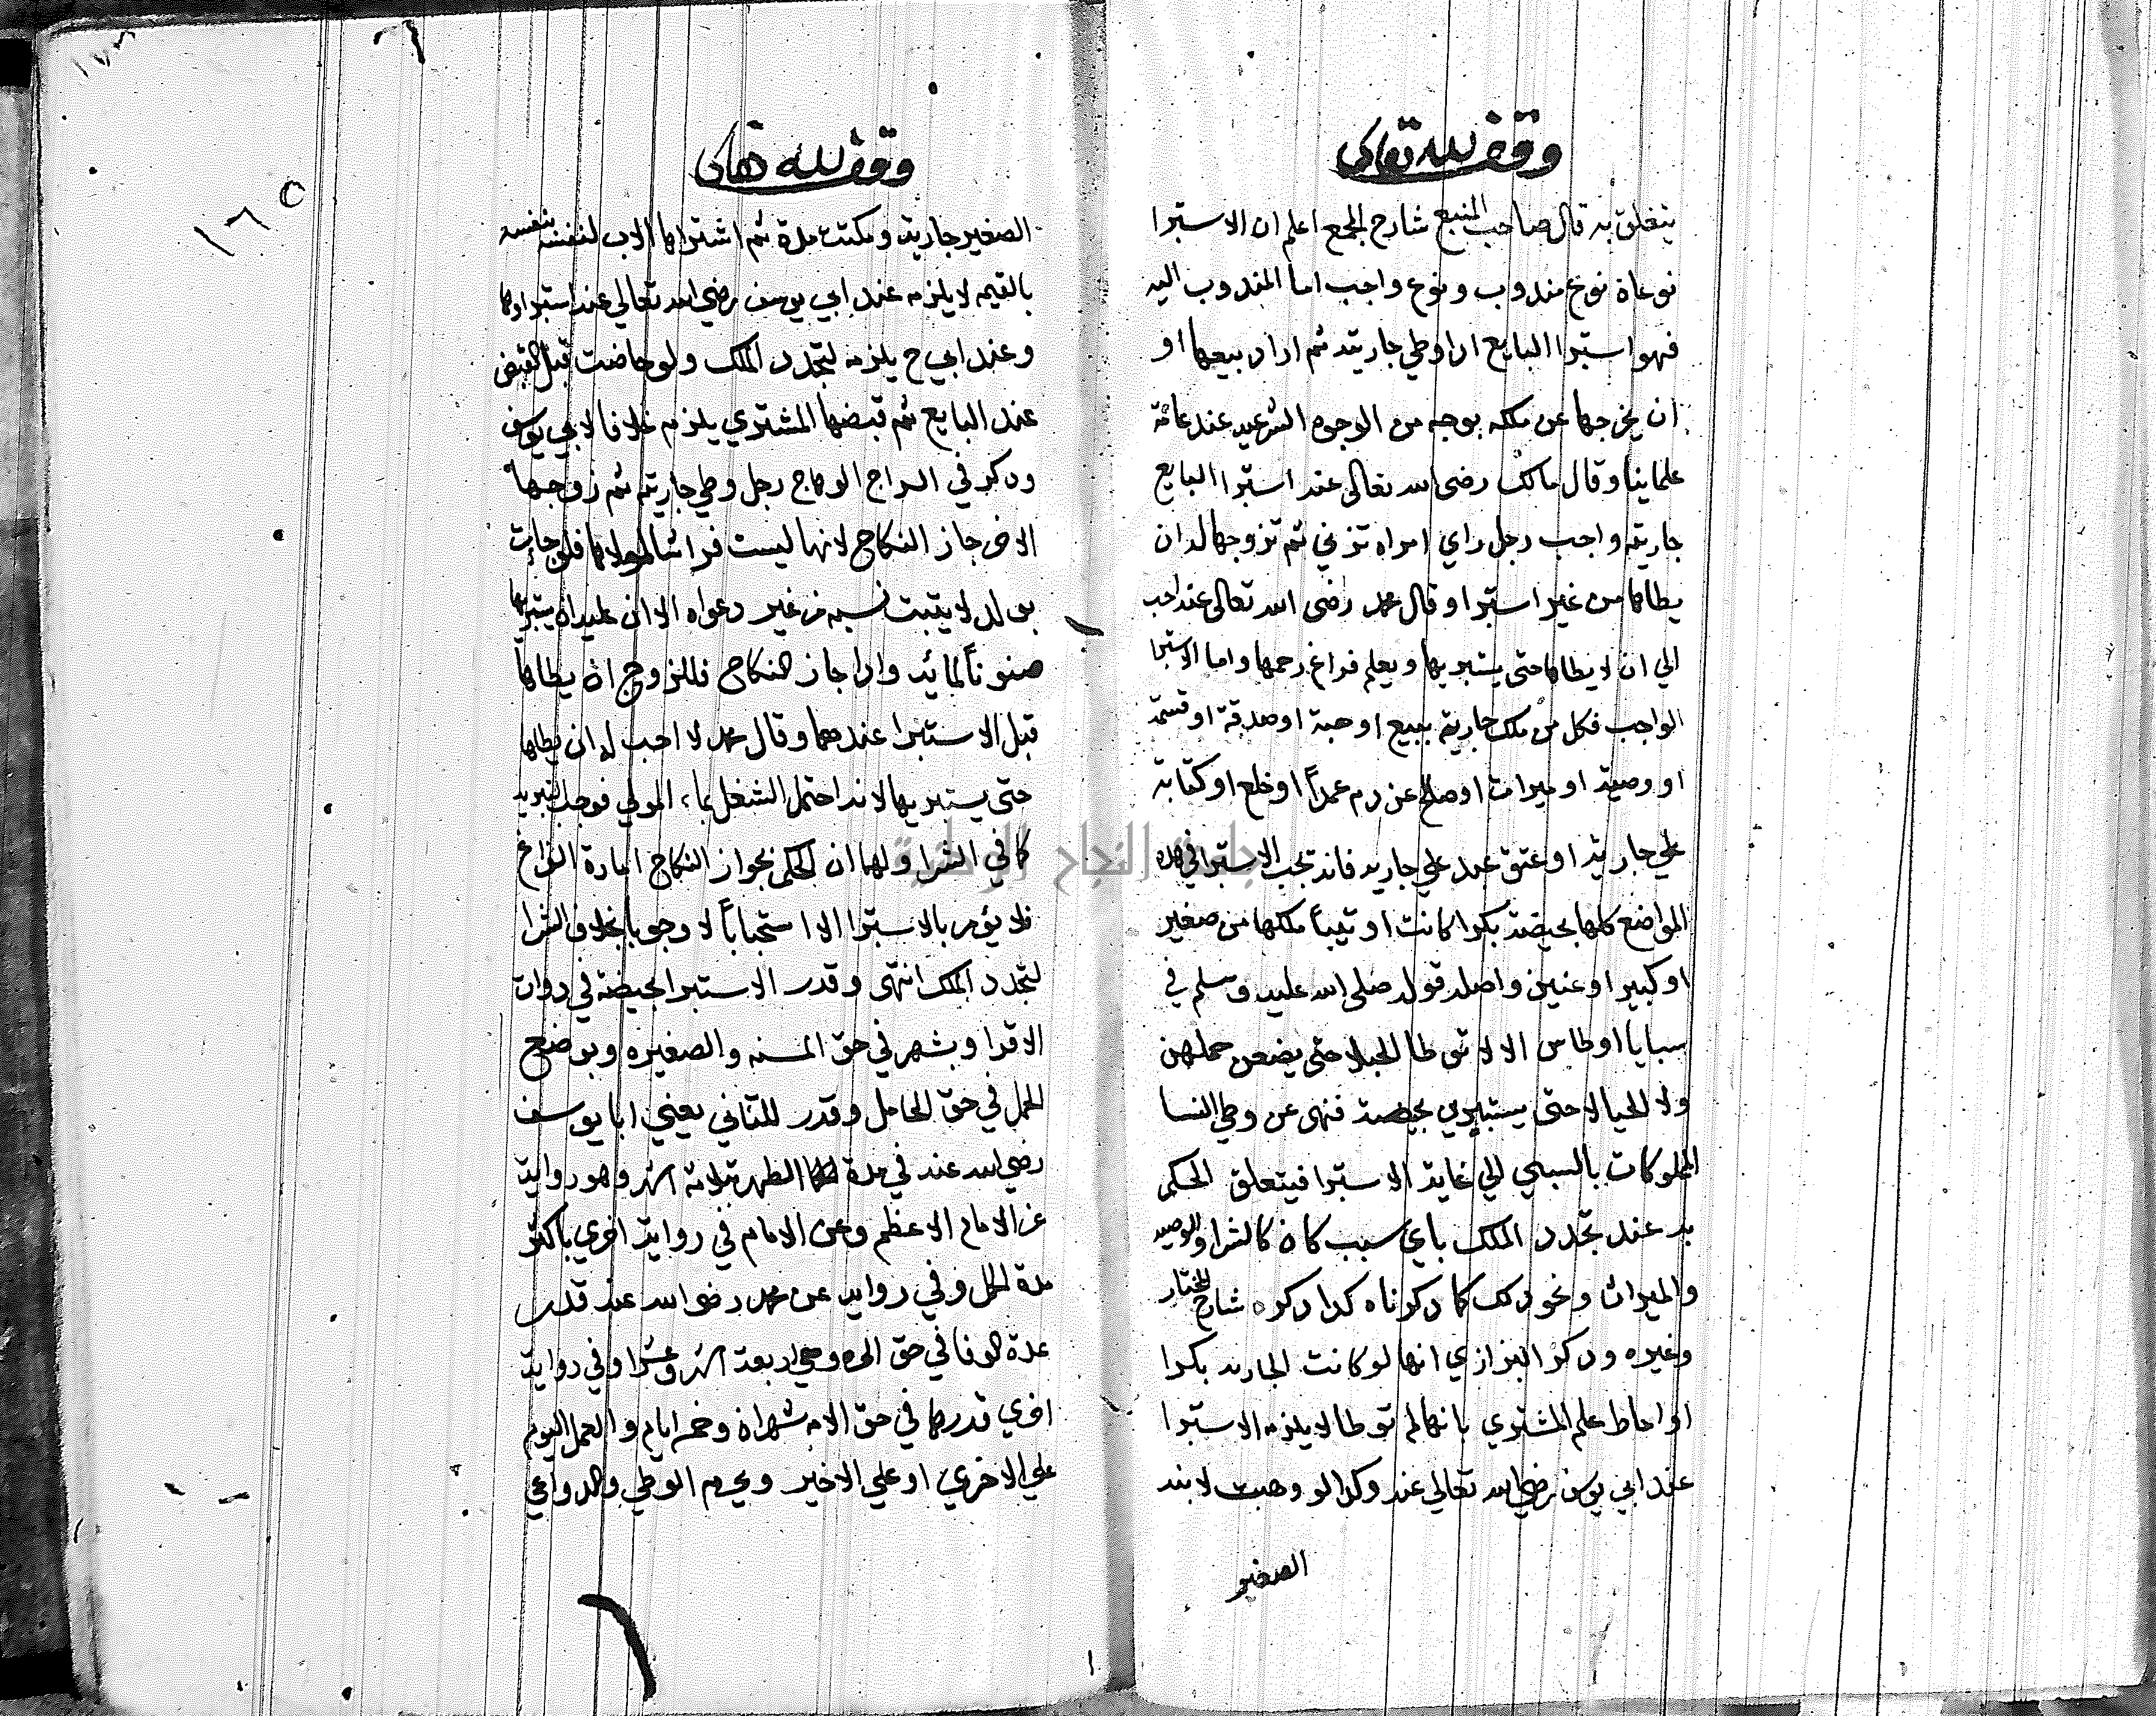 وقف لله تعالى
يتعلق به قال صاحب المنبع شارح المجمع اعلم ان الاستبرا
نوعان نوع مندوب ونوع واجب اما المندوب اليه
فهو استبرا البايع اذا وطي جاريته ثم اراد بيعها او
ان يخرجها عن ملكه بوجه من الوجوه الشرعيه عند عامة
علماينا وقال مالك رضى الله تعالى عنه استبرا البايع
جاريته واجب رجل راي امراه تزني ثم تزوجها له ان
يطاها من غير استبرا وقال محمد رضى الله تعالى عنه احب
الي ان لا يطاها حتى يستبريها ويعلم فراغ رحمها واما الاستبرا
الواجب فكل من ملك جارية ببيع او هبة او صدقة او قسمة
او وصية او ميراث او صلح عن دم عمداً او خلع او كتابة
علي جارية او عتق عبد علي جاريه فانه يجب الاستبرا في هذه
المواضع كلها بحيضة بكرا كانت او ثيباً ملكها من صغير
او كبير او عنين واصله قوله صلى الله عليه وسلم في
سبايا اوطاس الا لا توطا الحبلا حتى يضعن حملهن
ولا الحيالا حتى يستبرين بحيضة فنهى عن وطي النسا
المملوكات بالسبي الي غاية الاستبرا فيتعلق الحكم
به عند تجدد الملك باي سبب كان كالشرا والوصيه
والميراث ونحو ذلك كما ذكرناه كذا ذكره شارح المختار
وغيره وذكر البزازي انها لو كانت الجاريه بكرا
او احاط علم المشتري بانها لم توطا لا يلزمه الاستبرا
عند ابي يوسف رضي الله تعالي عنه وكذا لو وهبت لابنه
الصغير
١٦٥
وقف لله تعالى
الصغير جارية ومكثت مدة ثم اشتراها الاب لنفسه بنفسه
بالقيمه لا يلزمه عند ابي يوسف رضي الله تعالي عنه استبراوها
وعند ابي ح يلزمه لتجدد الملك ولو حاضت قبل القبض
عند البايع ثم قبضها المشتري يلزمه خلافا لابي يوسف
وذكر في السراج الوهاج رجل وطي جاريته ثم زوجها
لاخر جاز النكاح لانها ليست فراشا لمولاها فلو جات
بولد لا يثبت نسبه من غير دعواه الا ان عليه ان يستبريها
صوناً لمائه واذا جاز النكاح فللزوج ان يطاها
قبل الاستبرا عندهما وقال محمد لا احب له ان يطاها
حتى يستبريها لانه احتمل الشغل بماء المولي فوجب التبريه
كما في الشرا ولهما ان الحكم بجواز النكاح امارة الفراغ
فلا يؤمر بالاستبرا الا استحباباً لا وجوباً بخلاف الشرا
لتجدد الملك انتهى وقدر الاستبرا بحيضة في ذوات
الاقرا وبشهر في حق المسنه والصغيره وبوضع
الحمل في حق الحامل وقدر للثاني يعني ابا يوسف
رضي الله عنه في مدة الطهر بثلاثة اشهر وهو رواية
عن الامام الاعظم وعن الامام في رواية اخري باكثر
مدة الحمل وفي روايه عن محمد رضى الله عنه قدر
عدة الوفا في حق الحره وهي اربعة اشهر وعشرا وفي رواية
اخري قدرها في حق الامه شهران وخمس ايام والعمل اليوم
علي الاخري او علي الاخير ويحرم الوطي والدواعي